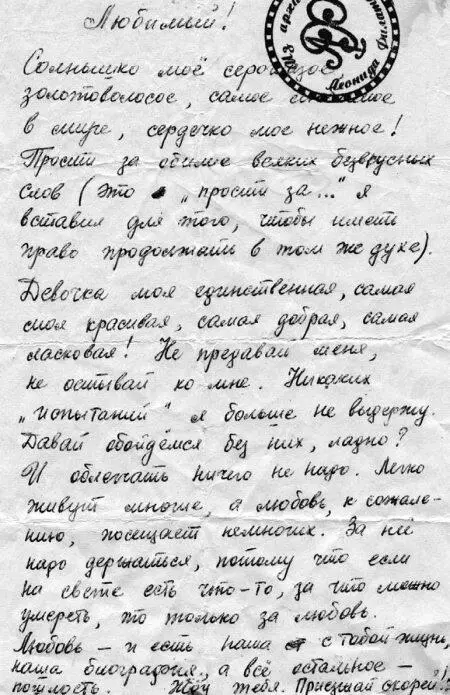 Любимый!
из архива Леонида Филатова
Солнышко моё сероглазое
золотоволосое, самое
в мире, сердечко мое нежное!
Прости за обилие всяких безвкусных
слов (это „прости за..." я
вставил для того, чтобы иметь
право продолжать в том же духе).
Девочка моя единственная, самая
моя красивая, самая добрая, самая
ласковая! Не предавай меня,
не остывай ко мне. Никаких
„испытаний" я больше не выдержу.
Давай обойдёмся без них, ладно?
И облегчать ничего не надо. Легко
живут многие, а любовь, к сожале-
нию, посещает немногих. За неё
надо держаться, потому что если
на свете есть что-то, за что можно
умереть, то только за любовь.
Любовь – и есть наша с тобой жизнь,
наша биография, а всё остальное –
пошлость. Жду тебя. Приезжай скорей!!